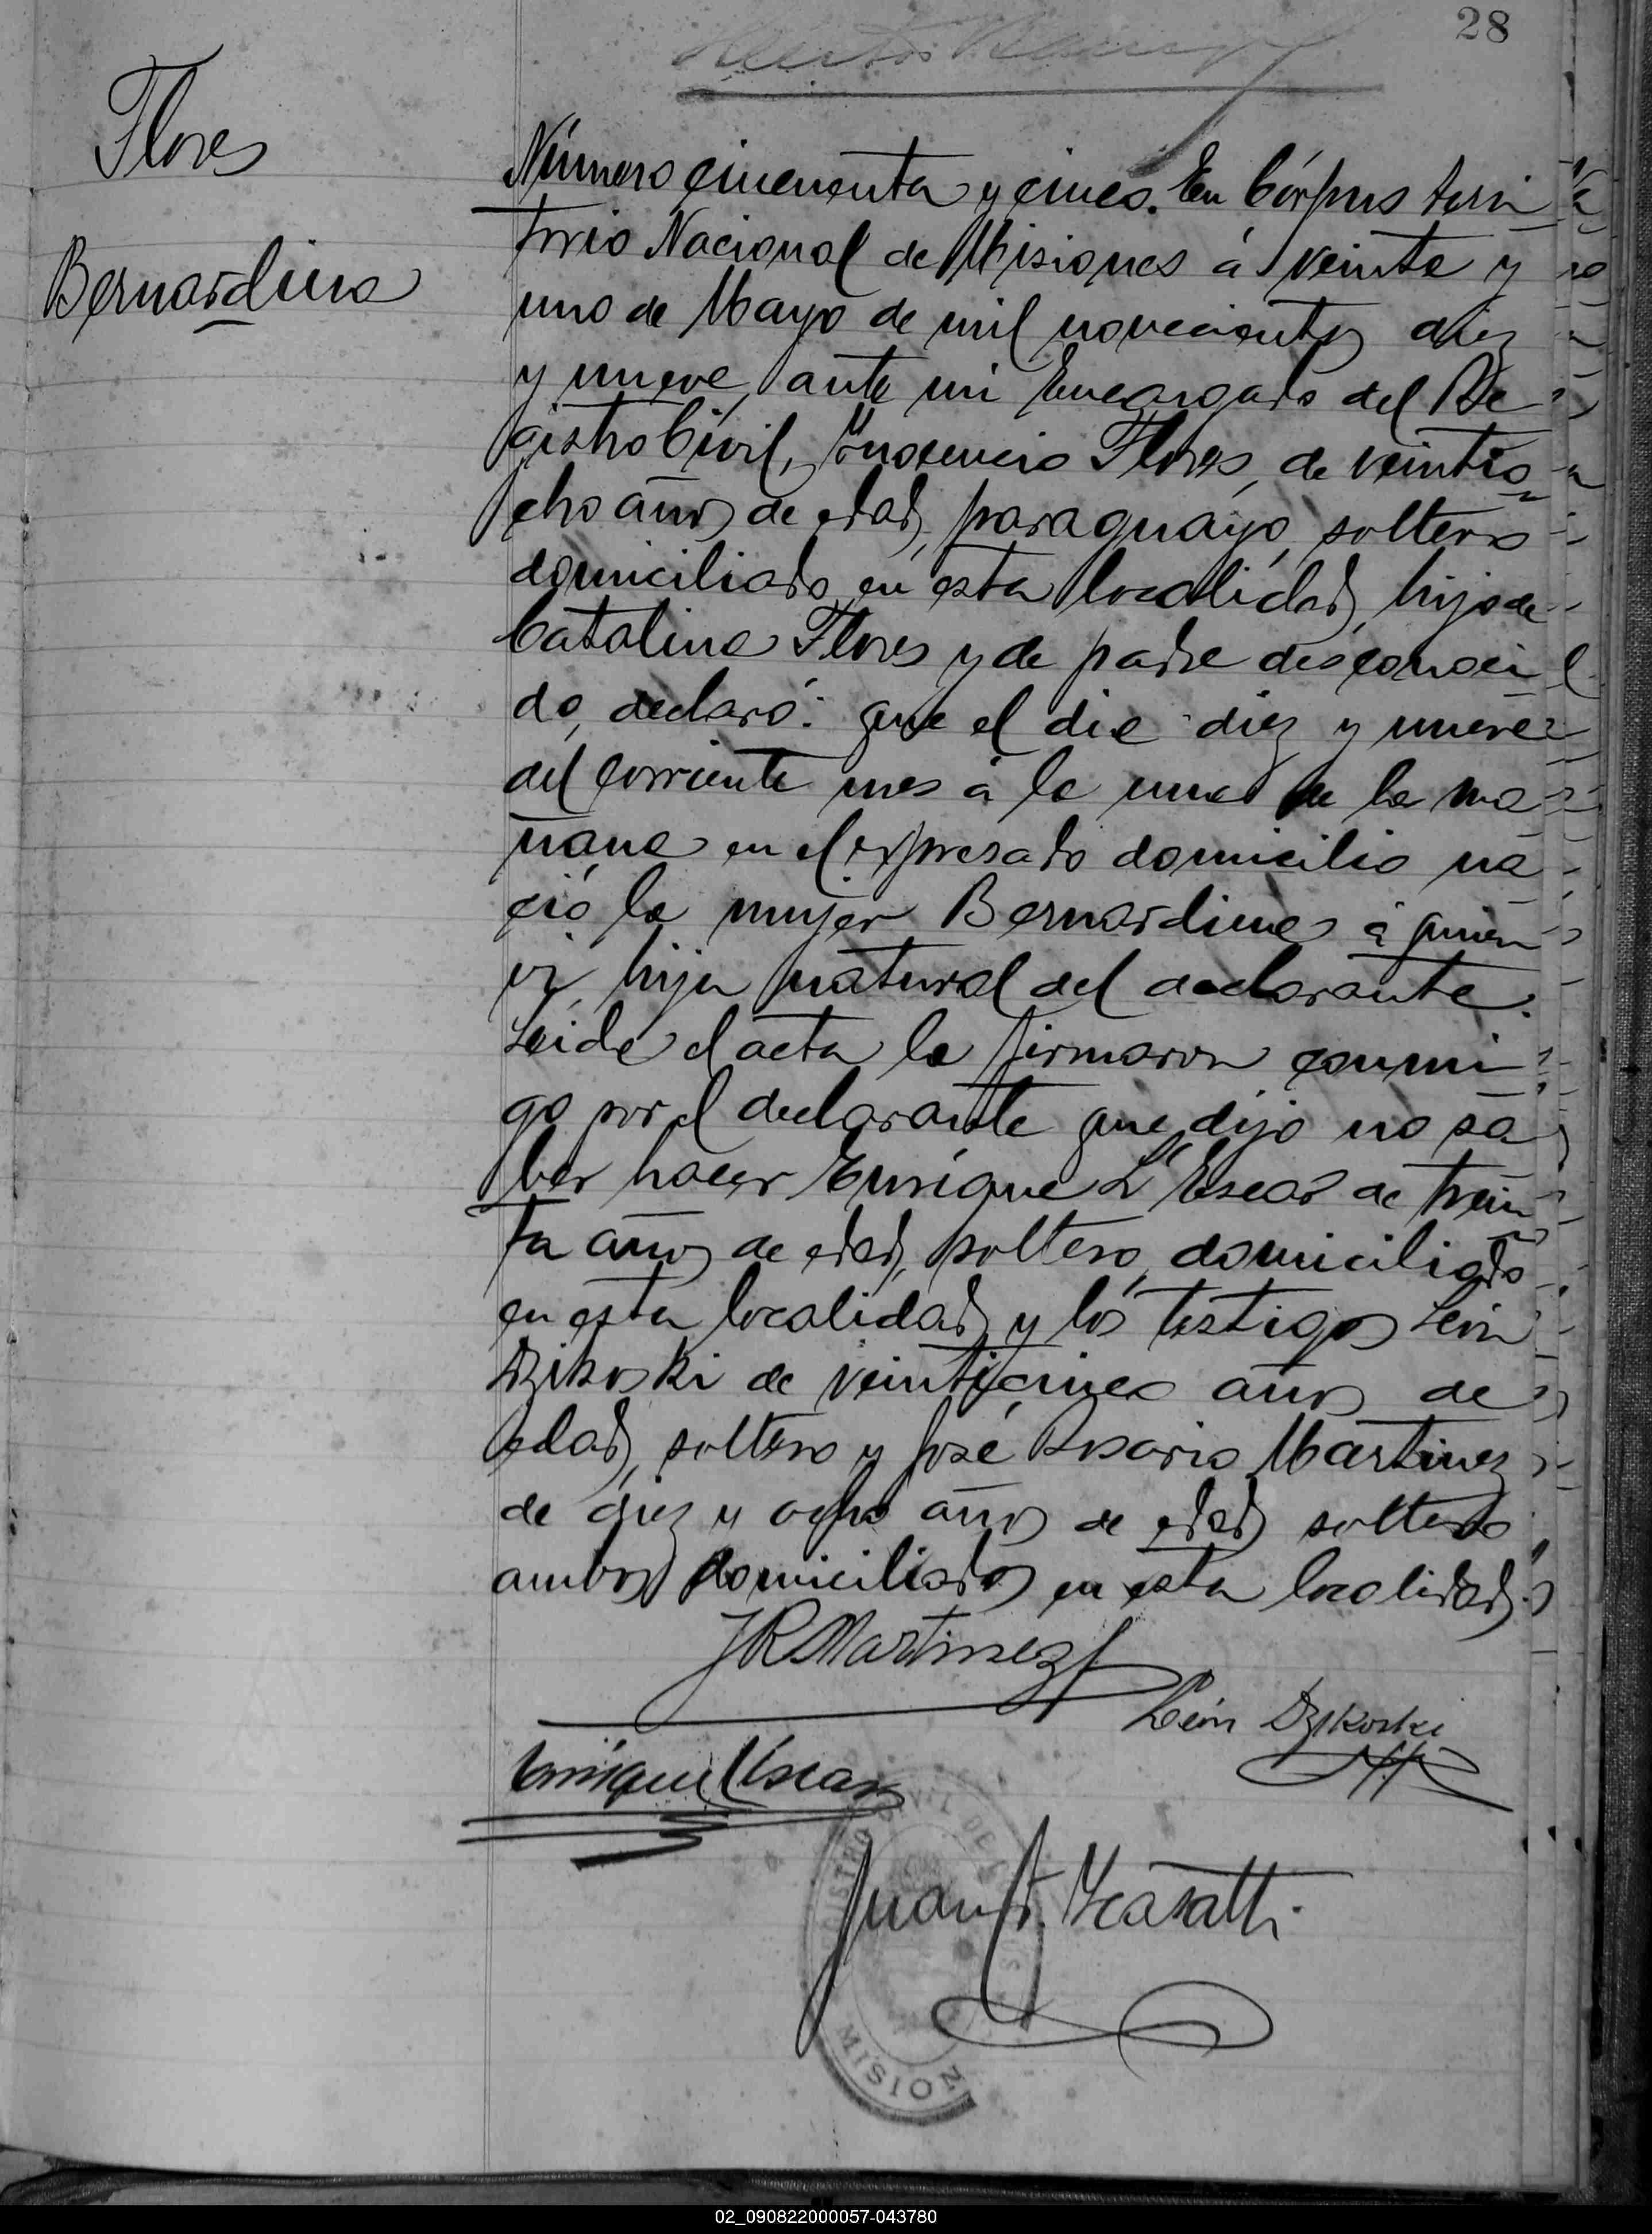 28
Flores
Bernardina
Número cincuenta y cinco. En Córpus terri
torio Nacional de Misiones á veinte y
uno de Mayo de mil novecientos diez
y nueve, ante mi Encargado del Re
gistro Civil, Flores, de veintio
cho años de edad, paraguayo, soltero
domiciliado en esta localidad, hijo de
Catalina Flores y de padre desconoci
do, declaró: que el dia diez y nueve
del corriente mes á la una de la ma
ñana en el expresado domicilio na
ció la mujer Bernardina á quien
vi, hija natural del declarante.
Leida el acta la firmaron conmi
go por el declarante que dijo no sa
ber hacer Enrique L. Escar de trein
ta años de edad, soltero, domiciliado
en esta localidad y los testigos León
Dzikoski de veinticinco años de
edad, soltero y José Rosario Martinez
de diez y ocho años de edad soltero
ambos domiciliados en esta localidad.
JR Martinez
León Dzikoski
Enrique Escar
Juan
MISION
02_090822000057-043780